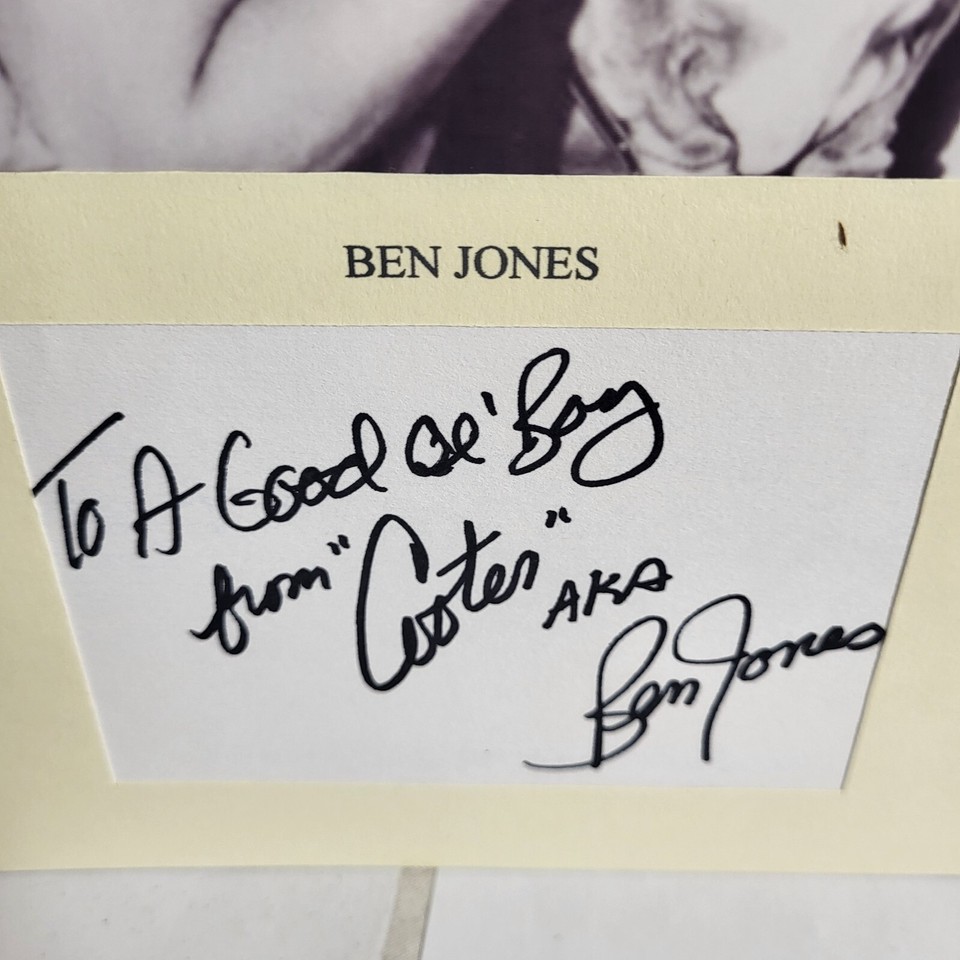 BEN JONES
To A Good Ol' Boy
from "Cooter" AKA
Ben Jones